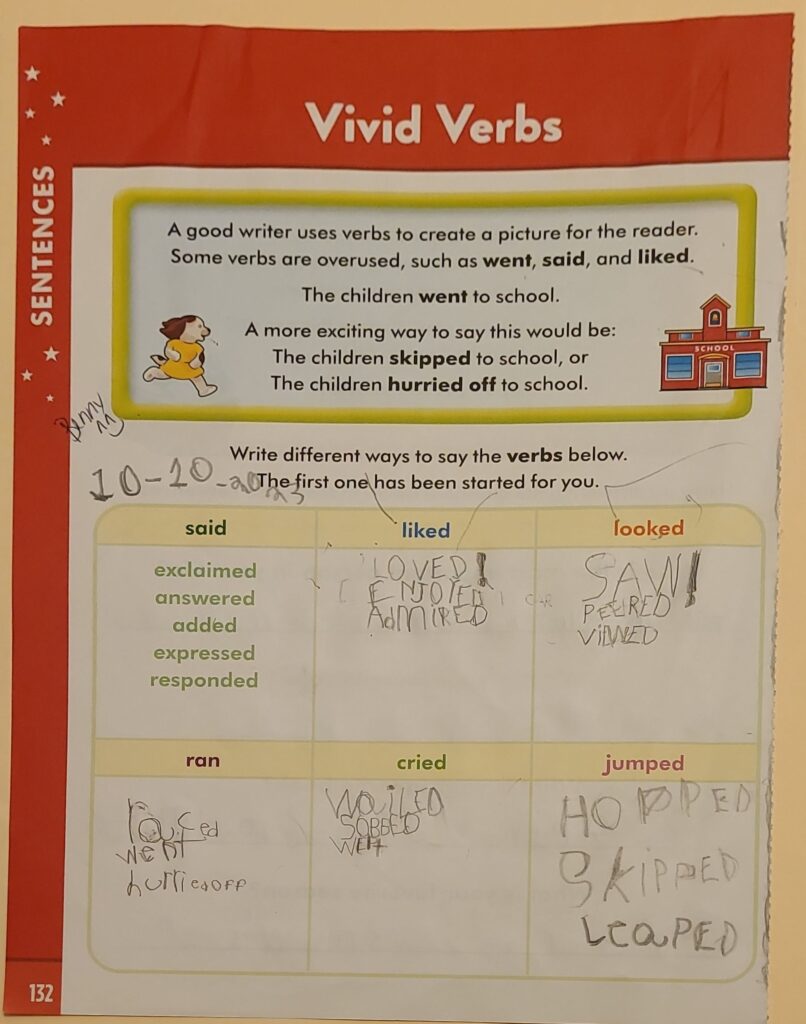 Vivid Verbs
SENTENCES
A good writer uses verbs to create a picture for the reader.
Some verbs are overused, such as went, said, and liked.
The children went to school.
A more exciting way to say this would be:
The children skipped to school, or
The children hurried off to school.
SCHOOL
Benny
Write different ways to say the verbs below.
10-10-2023
The first one has been started for you.
said
exclaimed
answered
added
expressed
responded
liked
LOVED!
ENJOYED
AdMIRED
looked
SAW!
PEERED
VIEWED
ran
raced
went
hurried OFF
cried
WaiLED
SOBBED
jumped
HOPPED
SKIPPED
LeaPED
132